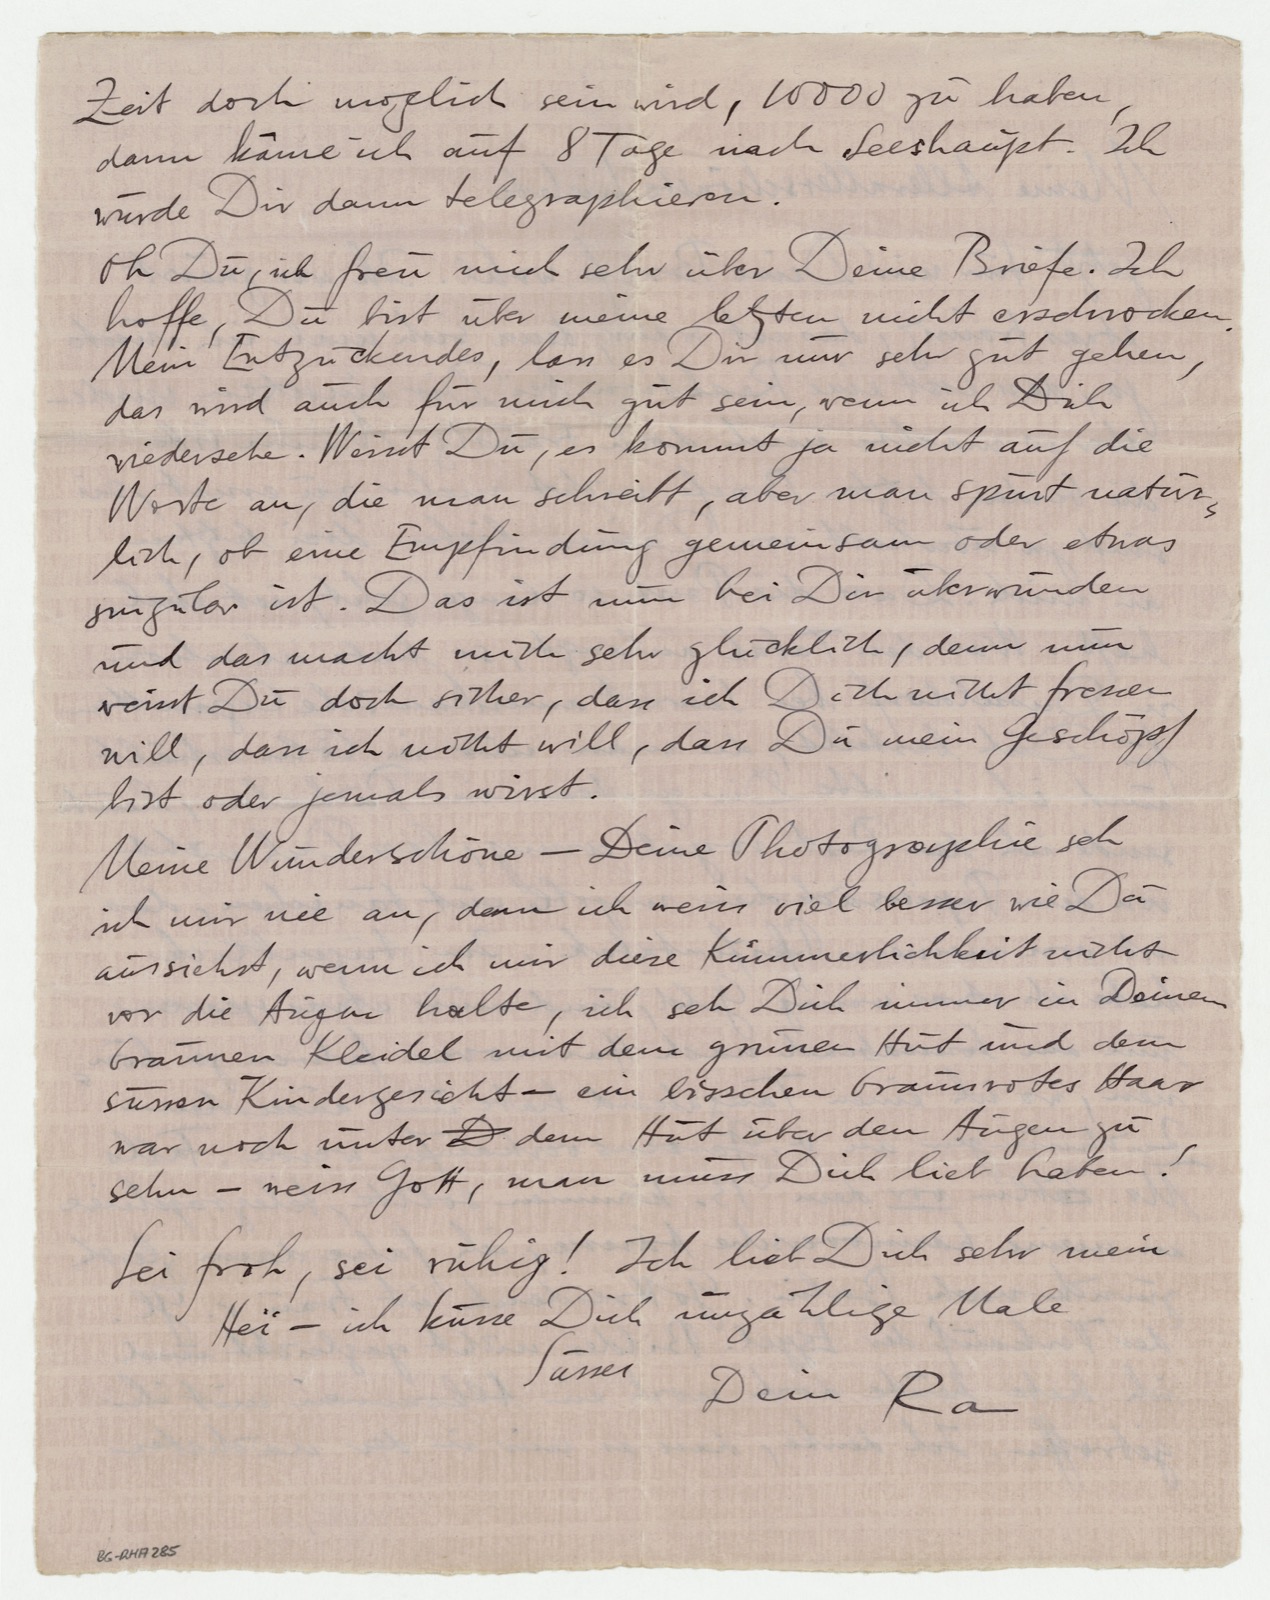 Zeit doch möglich sein wird, 10000 zu haben,
dann käme ich auf 8 Tage nach Seeshaupt. Ich
würde Dir dann telegraphieren.
Oh Du, ich freu mich sehr über Deine Briefe. Ich
hoffe, Du bist über meine letzten nicht erschrocken.
Mein Entzückendes, lass es Dir nur sehr gut gehen,
das wird auch für mich gut sein, wenn ich Dich
wiedersehe. Weisst Du, es kommt ja nicht auf die
Worte an, die man schreibt, aber man spürt natür-
lich, ob eine Empfindung gemeinsam oder etwas
singulär ist. Das ist nun bei Dir überwunden
und das macht mich sehr glücklich, denn nun
weisst Du doch sicher, dass ich Dich nicht fressen
will, dass ich nicht will, dass Du mein Geschöpf
bist oder jemals wirst.
Meine Wunderschöne – Deine Photographie seh
ich mir nie an, denn ich weiss viel besser wie Du
aussiehst, wenn ich mir diese Kümmerlichkeit nicht
vor die Augen halte, ich seh Dich immer in Deinem
braunen Kleidel mit dem grünen Hut und dem
süssen Kindergesicht – ein bisschen braunrotes Haar
war noch unter D dem Hut über den Augen zu
sehn – weiss Gott, man muss Dich lieb haben!
Sei froh, sei ruhig! Ich lieb Dich sehr mein
Hei – ich küsse Dich unzählige Male
Süsses
Dein Ra
BG-RHA 285